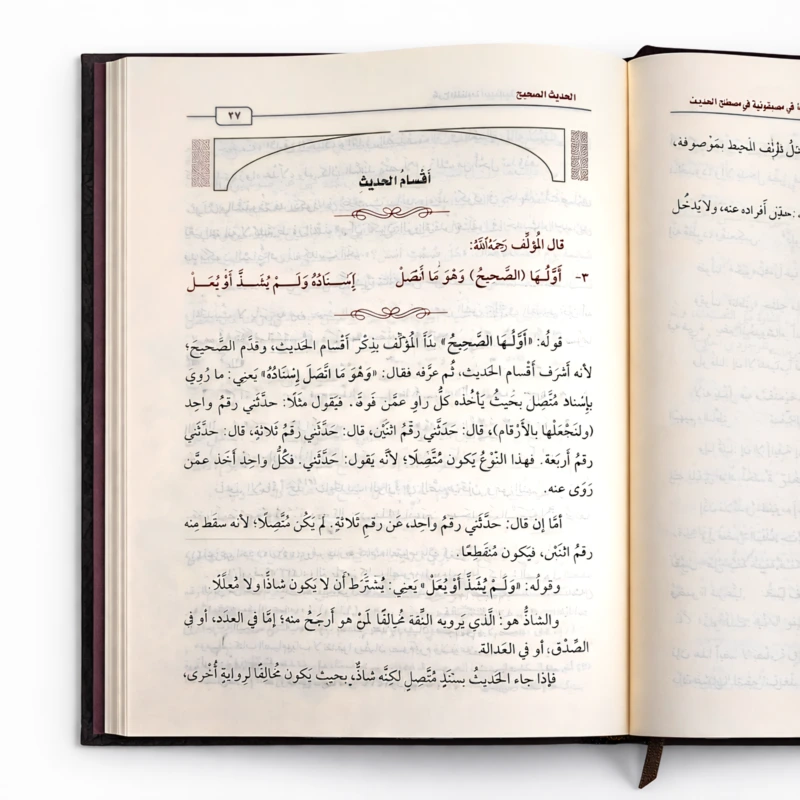 الحديث الصحيح
٢٧
أَقْسَامُ الحديث
قال المُؤلِّف رَحِمَهُ اللهُ:
٣- أَوَّلُـهَا (الصَّحِيحُ) وَهْوَ مَا اتَّصَلْ إِسْنَادُهُ وَلَـمْ يُشَـذَّ أَوْ يُعَـلْ
قولُه: «أَوَّلُـهَا الصَّحِيحُ» بدَأَ المُؤلِّف بذِكْر أَقْسام الحديث، وقدَّم الصَّحيحَ؛
لأنه أَشرَف أَقْسام الحَديث، ثُم عرَّفه فقال: «وَهْوَ مَا اتَّصَلَ إِسْنَادُهُ» يَعنِي: ما رُوِيَ
بإِسْناد مُتَّصِل بحيثُ يَأخُذه كلُّ راوٍ عمَّن فوقَه. فيَقول مثَلًا: حدَّثَني رقمُ واحِد
(ولنَجْعَلْها بالأَرْقام)، قال: حَدَّثَني رقْمُ اثنَيْن، قال: حدَّثَني رقمُ ثلاثةٍ، قال: حدَّثَني
رقمُ أَربعة. فهذا النَّوْعُ يَكون مُتَّصِلًا؛ لأنَّه يَقول: حدَّثَني. فكُلُّ واحِدٍ أَخَذ عمَّن
رَوَى عنه.
أمَّا إن قال: حدَّثَني رقمُ واحِد، عَن رقمِ ثلاثةٍ. لم يَكُن مُتَّصِلًا؛ لأنه سقَط مِنه
رقمُ اثنَيْن، فيَكون مُنقَطِعًا.
وقولُه: «وَلَـمْ يُشَذَّ أَوْ يُعَلْ» يَعنِي: يُشتَرَط أن لا يَكون شاذًّا ولا مُعلَّلًا.
والشاذُّ هو: الَّذي يَرويه الثِّقة مُخالِفًا لمَنْ هو أَرجَحُ منه؛ إمَّا في العدَد، أو في
الصِّدْق، أو في العَدالة.
فإذا جاء الحَديثُ بسنَدٍ مُتَّصِلٍ لكِنَّه شاذٌّ، بحيث يَكون مُخالِفًا لرِوايةٍ أُخْرى،
في مصطلح الحديث
المحيط بمَوْصوفه،
أَفراده عنه، ولا يَدخُل